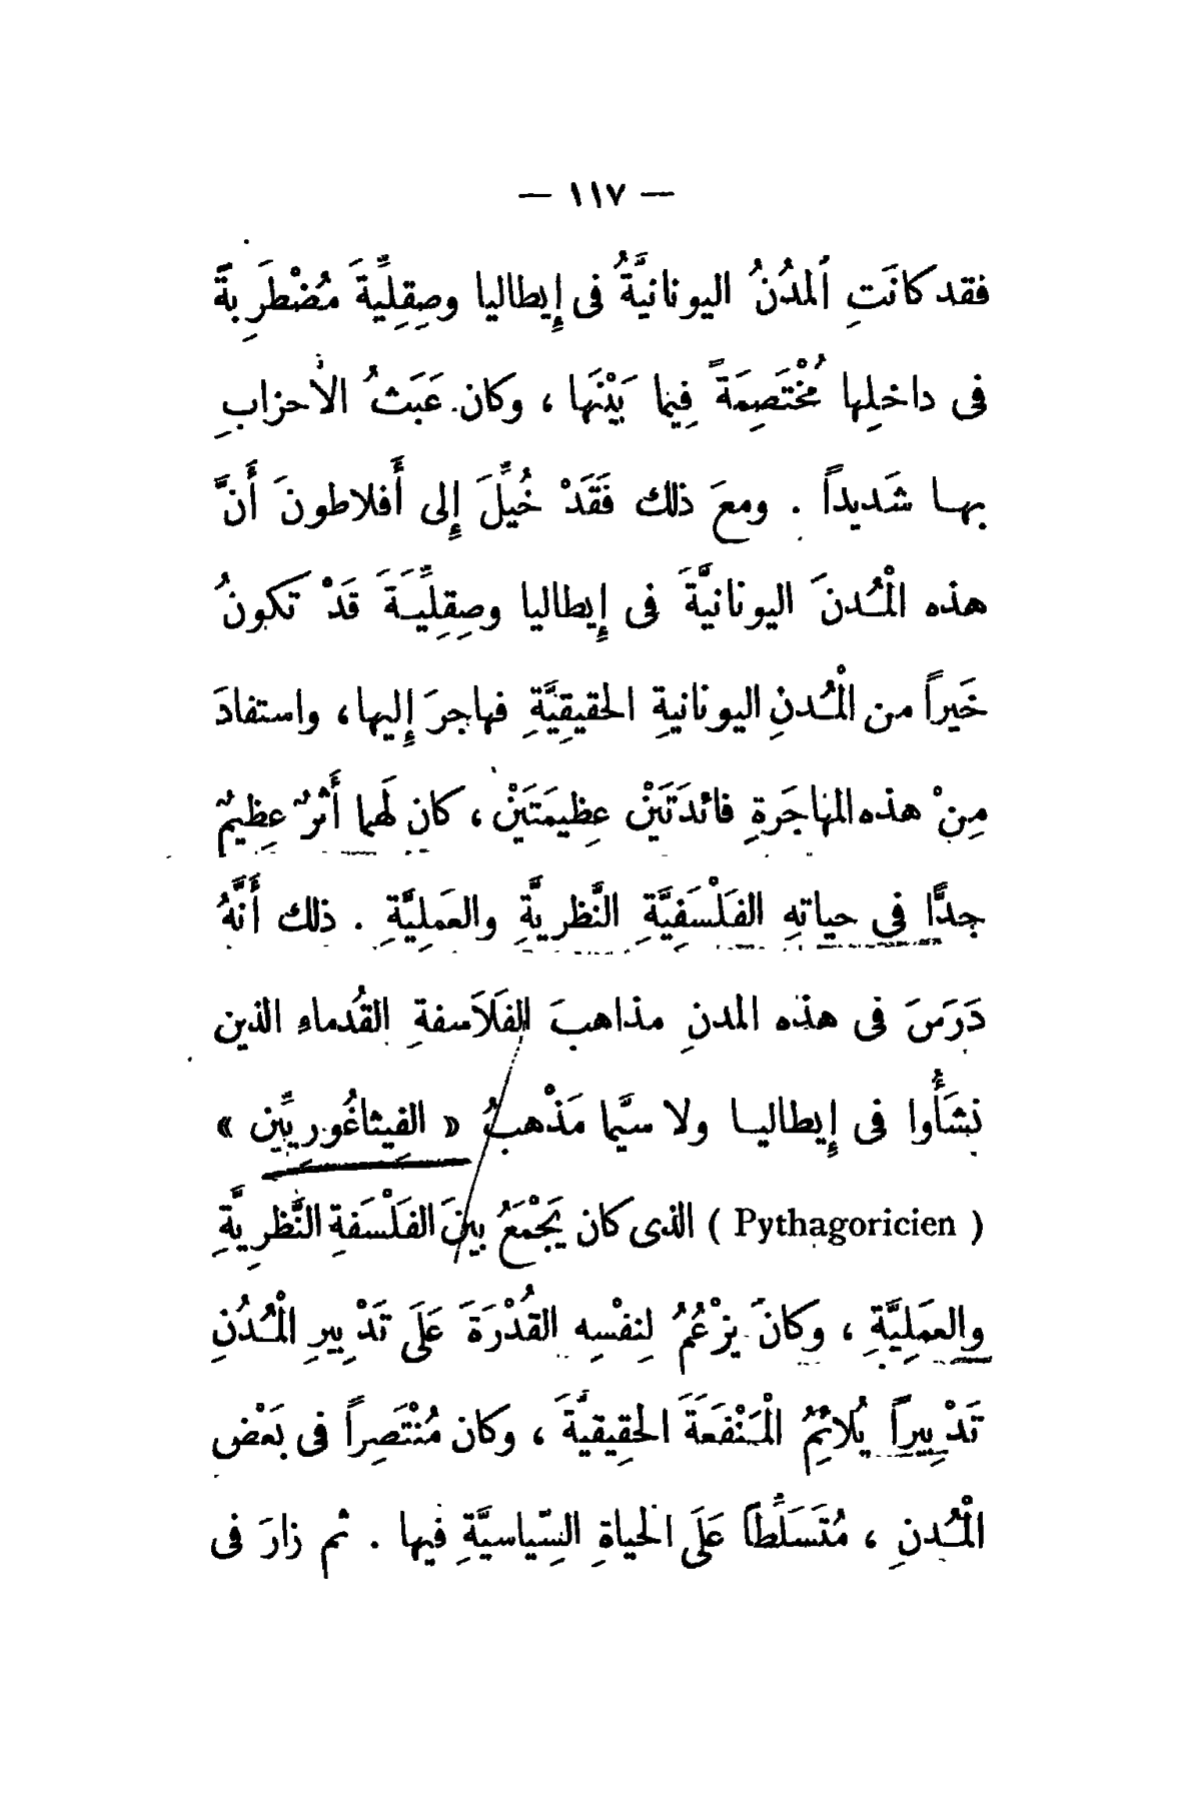 — ١١٧ —
فقد كانَتِ ٱلمدُنُ اليونانيَّةُ فى إِيطاليا وصِقِلِّيَّةَ مُضْطَرِبةً
فى داخلِها مُخْتَصِمَةً فِيما بَيْنَها ، وكان عَبَثُ الأحزابِ
بها شَديداً . ومعَ ذلك فَقَدْ خُيِّلَ إِلى أَفلاطونَ أَنَّ
هذه الْمُدنَ اليونانيَّةَ فى إِيطاليا وصِقِلِّيَّةَ قَدْ تَكونُ
خَيراً من الْمُدنِ اليونانيةِ الحقيقِيَّةِ فهاجرَ إِليها ، واستفادَ
مِنْ هذه المهاجَرةِ فائدَتَيْنِ عظِيمَتَيْنِ ، كان لَهما أَثرٌ عظِيمٌ
جدًّا فى حياتهِ الفَلْسَفِيَّةِ النَّظريَّةِ والعَمَلِيَّةِ . ذلك أَنَّهُ
دَرَسَ فى هذه المدنِ مذاهبَ الفَلاَسفةِ القُدماءِ الذين
نشَأُوا فى إِيطاليا ولا سيَّما مَذْهبُ « الفِيثاغُورِيِّين »
( Pythagoricien ) الذى كان يَجْمَعُ بينَ الفَلْسَفةِ النَّظريَّةِ
والعَمَلِيَّةِ ، وكانَ يزْعُمُ لِنفْسِه القُدْرَةَ عَلَى تَدْبِيرِ الْمُدُنِ
تَدْبِيراً يُلائمُ الْمَنْفَعَةَ الحقِيقيَّةَ ، وكان مُنْتَصِراً فى بَعْض
الْمُدنِ ، مُتَسَلِّطاً عَلَى الحياةِ السِّياسيَّةِ فيها . ثم زارَ فى